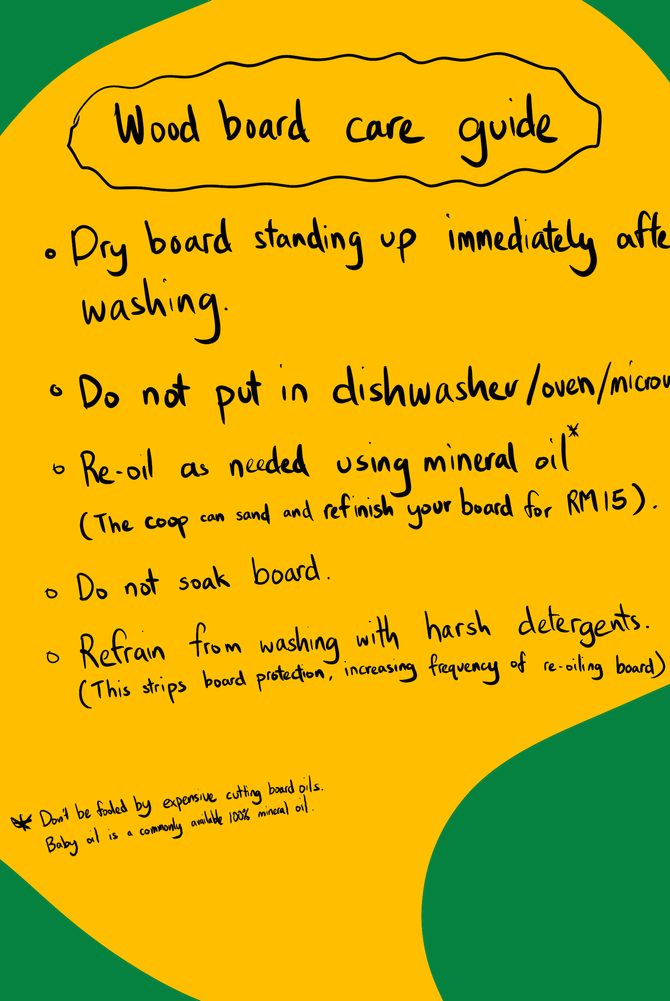 Wood board care guide
• Dry board standing up immediately afte
washing.
• Do not put in dishwasher/oven/microw
• Re-oil as needed using mineral oil*
(The coop can sand and refinish your board for RM15).
• Do not soak board.
• Refrain from washing with harsh detergents.
(This strips board protection, increasing frequency of re-oiling board)
* Don't be fooled by expensive cutting board oils.
Baby oil is a commonly available 100% mineral oil.